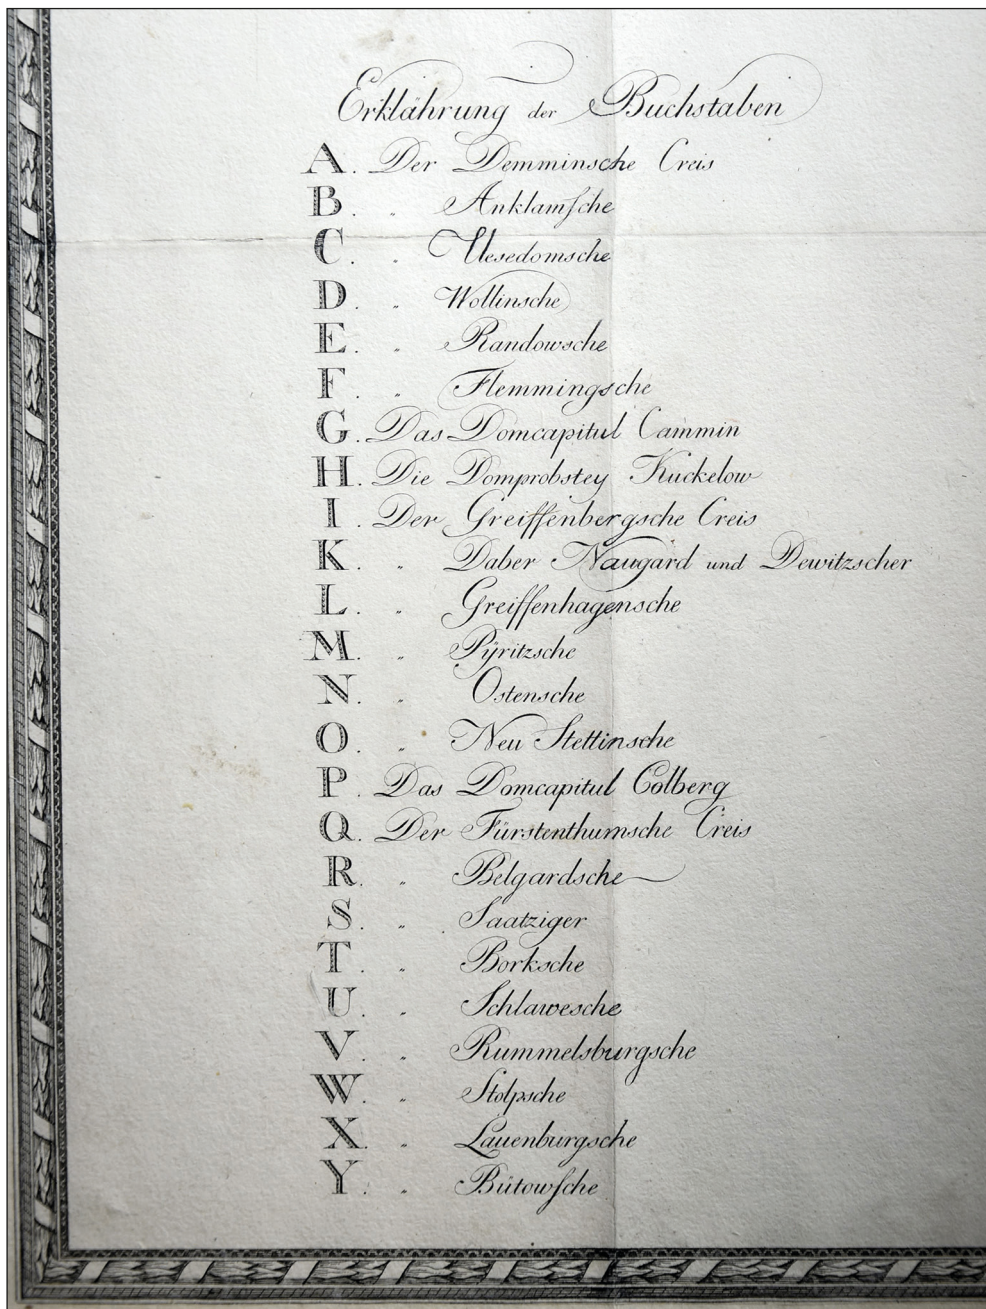 Erklährung der Buchstaben
A. Der Demminsche Creis
B. „ Anklamſche
C. „ Uesedomsche
D. „ Wollinsche
E. „ Randowsche
F. „ Flemmingsche
G. Das Domcapitul Cammin
H. Die Domprobstey Kuckelow
I. Der Greiffenbergsche Creis
K. „ Daber Naugard und Dewitzscher
L. „ Greiffenhagensche
M. „ Pÿritzsche
N. „ Ostensche
O. „ Neu Stettinsche
P. Das Domcapitul Colberg
Q. Der Fürstenthumsche Creis
R. „ Belgardsche
S. „ Saatziger
T. „ Borksche
U. „ Schlawesche
V. „ Rummelsburgsche
W. „ Stolpsche
X. „ Lauenburgsche
Y. „ Bütowſche